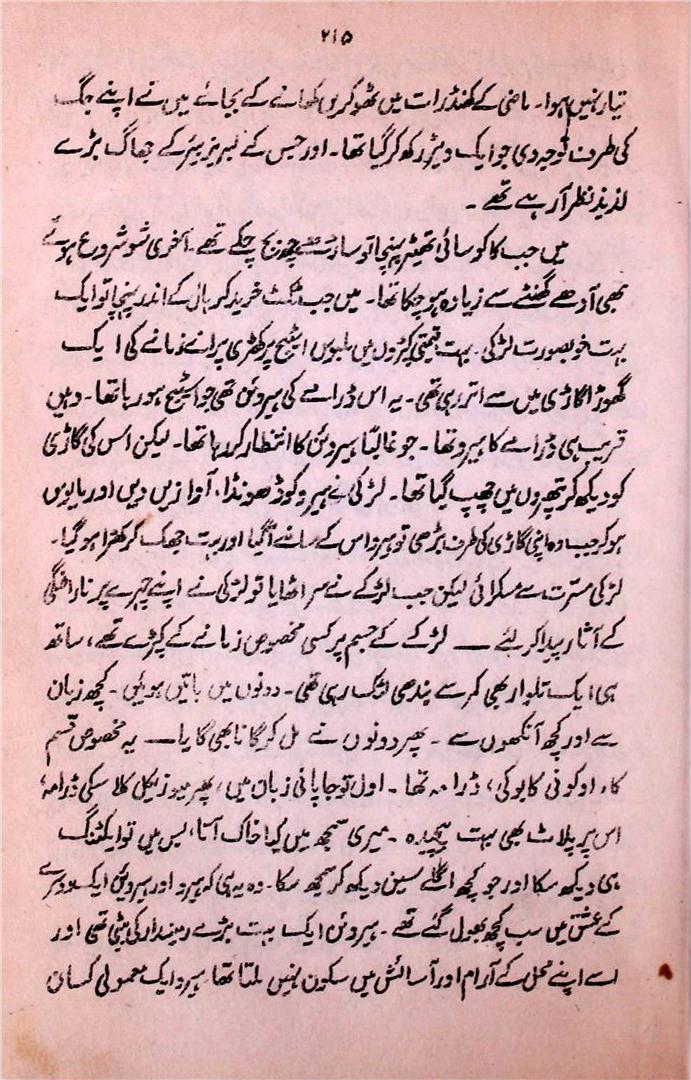 ۲۱۵
تیار نہیں ہوا۔ ماضی کے کھنڈرات میں ٹھوکریں کھانے کے بجائے میں نے اپنے جگ
کی طرف توجہ دی جو ایک ویٹر رکھ کر گیا تھا۔ اور جس کے لبریز بیئر کے جھاگ بڑے
لذیذ نظر آ رہے تھے ۔
میں جب کاکوسائی تھیٹر پہنچا تو ساڑھے چھ بج چکے تھے۔ آخری شو شروع ہوئے
بھی آدھے گھنٹے سے زیادہ ہو چکا تھا۔ میں جب ٹکٹ خرید کر ہال کے اندر پہنچا تو ایک
بہت خوبصورت لڑکی۔ بہت قیمتی کپڑوں میں ملبوس اسٹیج پر کھڑی پرانے زمانے کی ایک
گھوڑا گاڑی میں سے اتر رہی تھی۔ یہ اس ڈرامے کی ہیروئن تھی جو اسٹیج ہو رہا تھا۔ وہیں
قریب ہی ڈرامے کا ہیرو تھا۔ جو غالباً ہیروئن کا انتظار کر رہا تھا۔ لیکن اس کی گاڑی
کو دیکھ کر پتھروں میں چھپ گیا تھا۔ لڑکی نے ہیرو کو ڈھونڈا، آوازیں دیں اور مایوس
ہو کر جب وہ اپنی گاڑی کی طرف بڑھی تو ہیرو اس کے سامنے آگیا اور بہت جھک کر کھڑا ہو گیا۔
لڑکی مسرت سے مسکرائی لیکن جب لڑکے نے سر اٹھایا تو لڑکی نے اپنے چہرے پر ناراضگی
کے آثار پیدا کر لئے ــــ لڑکے کے جسم پر کسی مخصوص زمانے کے کپڑے تھے، ساتھ
ہی ایک تلوار بھی کمر سے بندھی لٹک رہی تھی۔ دونوں میں باتیں ہوئیں۔ کچھ زبان
سے اور کچھ آنکھوں سے ۔ پھر دونوں نے مل کر گانا بھی گایا ــــ یہ مخصوص قسم
کا، اوکونی کابوکی، ڈرامہ تھا ۔ اول تو جاپانی زبان میں، پھر میوزیکل کلاسکی ڈرامہ،
اس پر پلاٹ بھی بہت پیچیدہ ۔ میری سمجھ میں کیا خاک آتا، بس میں تو ایکٹنگ
ہی دیکھ سکا اور جو کچھ اگلے سین دیکھ کر سمجھ سکا۔ وہ یہ ہی کہ ہیرو اور ہیروئن ایک دوسرے
کے عشق میں سب کچھ بھول گئے تھے ۔ ہیروئن ایک بہت بڑے زمیندار کی بیٹی تھی اور
اسے اپنے محل کے آرام اور آسائش میں سکون نہیں ملتا تھا ہیرو ایک معمولی کسان